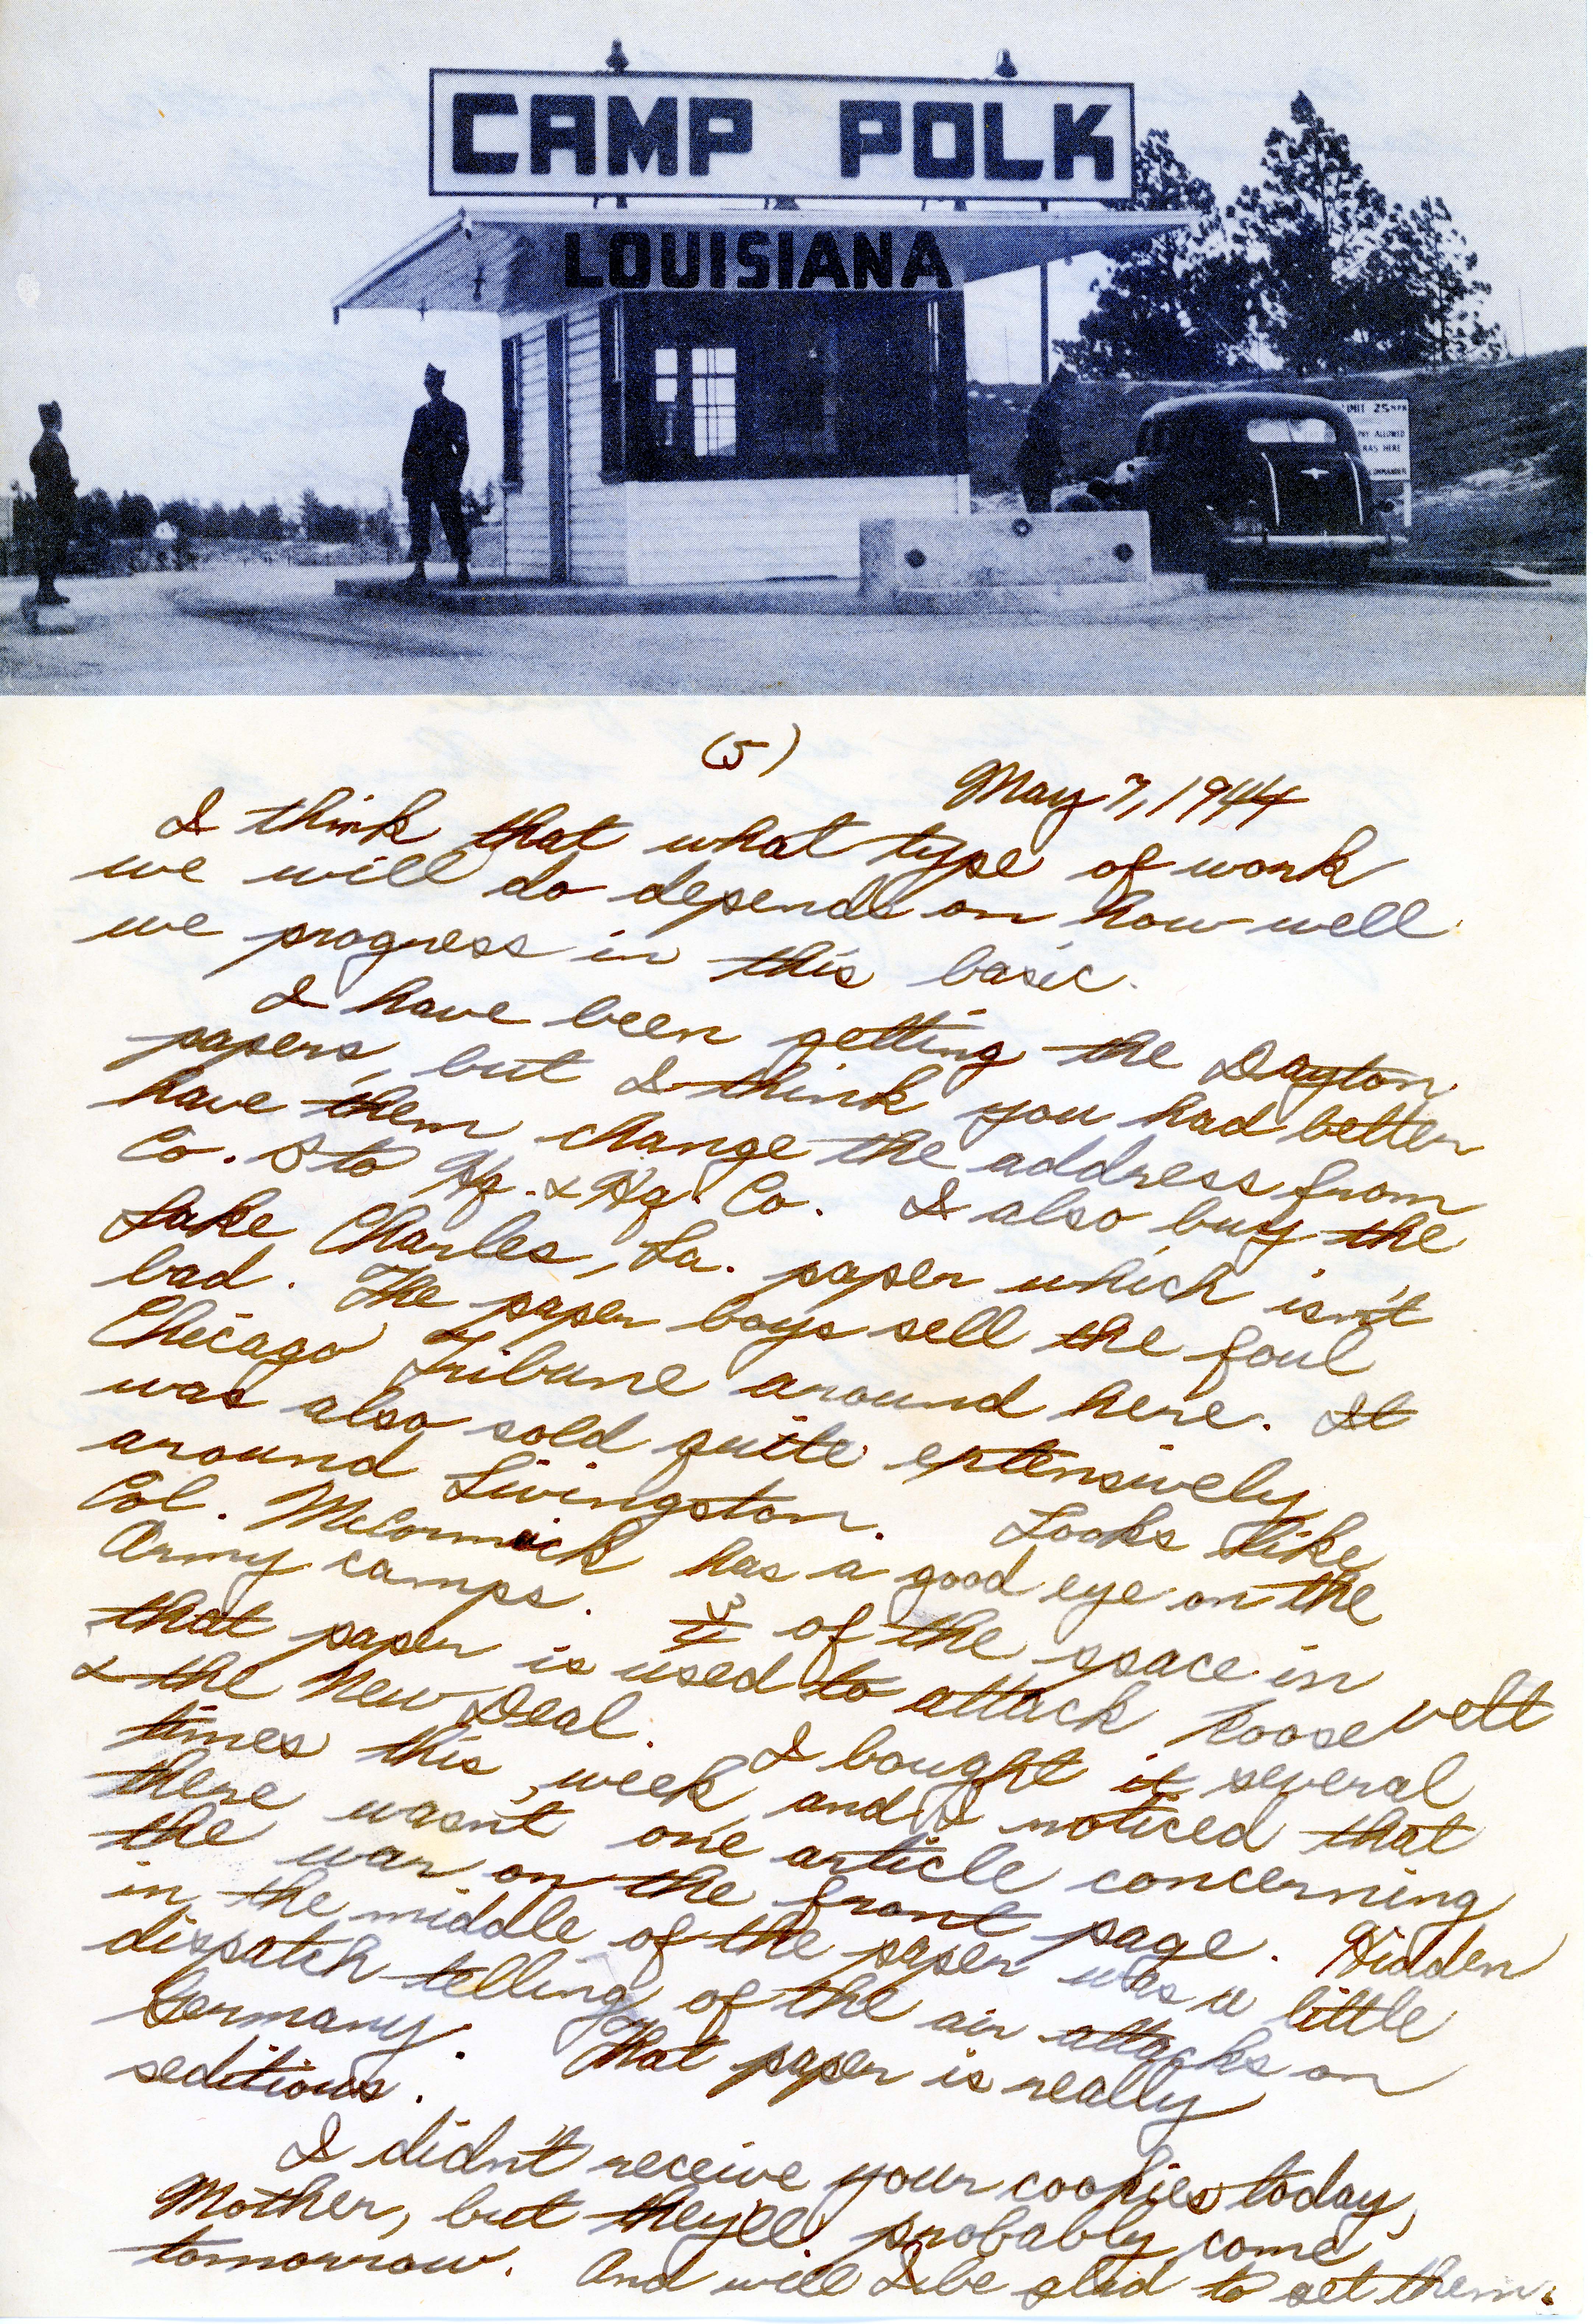 CAMP POLK
LOUISIANA
IMIT 25 MPH
PHY ALLOWED
RAS HERE
OMMANDER
(5)
May 7, 1944
I think that what type of work
we will do depends on how well
we progress in this basic.
I have been getting the Dayton
papers, but I think you had better
have them change the address from
Co. D to Hq. & Hq. Co. I also buy the
Lake Charles, La. paper which isn't
bad. The paper boys sell the foul
Chicago Tribune around here. It
was also sold quite extensively
around Livingston. Looks like
Col. McCormick has a good eye on the
Army camps. 3/4 of the space in
that paper is used to attack Roosevelt
& the New Deal. I bought it several
times this week, and I noticed that
there wasn't one article concerning
the war on the front page. Hidden
in the middle of the paper was a little
dispatch telling of the air attacks on
Germany. That paper is really
seditious.
I didn't receive your cookies today,
Mother, but they'll probably come
tomorrow. And will I be glad to get them.